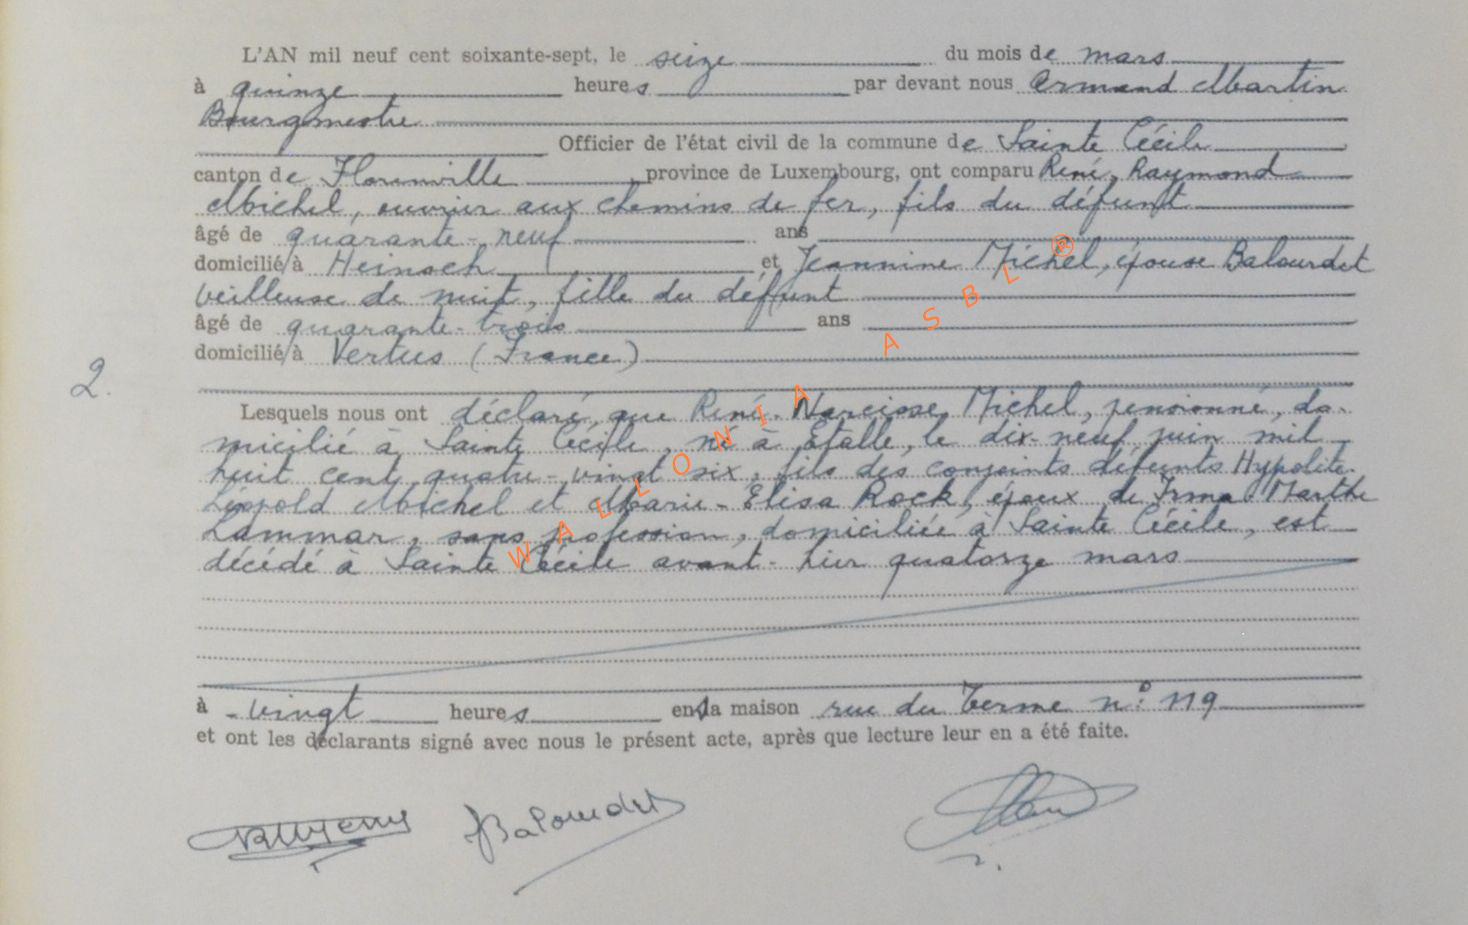 L'AN mil neuf cent soixante-sept, le seize du mois de mars
à quinze heures par devant nous Armand Martin
Bourgmestre
Officier de l'état civil de la commune de Sainte Cécile
canton de Florenville, province de Luxembourg, ont comparu René, Raymond
Michel, ouvrier aux chemins de fer, fils du défunt
âgé de quarante-neuf ans
domicilié à Heinsch et Jeannine Michel, épouse Balourdet
veilleuse de nuit, fille du défunt
âgé de quarante-trois ans
domicilié à Vertus (France)
2.
Lesquels nous ont déclaré que René-Narcisse Michel, pensionné, do-
micilié à Sainte Cécile, né à Etalle, le dix-neuf juin mil
huit cent quatre-vingt six, fils des conjoints défunts Hypolite-
Léopold Michel et Marie-Elisa Rock, époux de Irma Marthe
Lammar, sans profession, domiciliée à Sainte Cécile, est
décédé à Sainte Cécile avant-hier quatorze mars
à vingt heures en sa maison rue du Terme n° 119
et ont les déclarants signé avec nous le présent acte, après que lecture leur en a été faite.
JBalourdet
WALLONIA ASBL ®